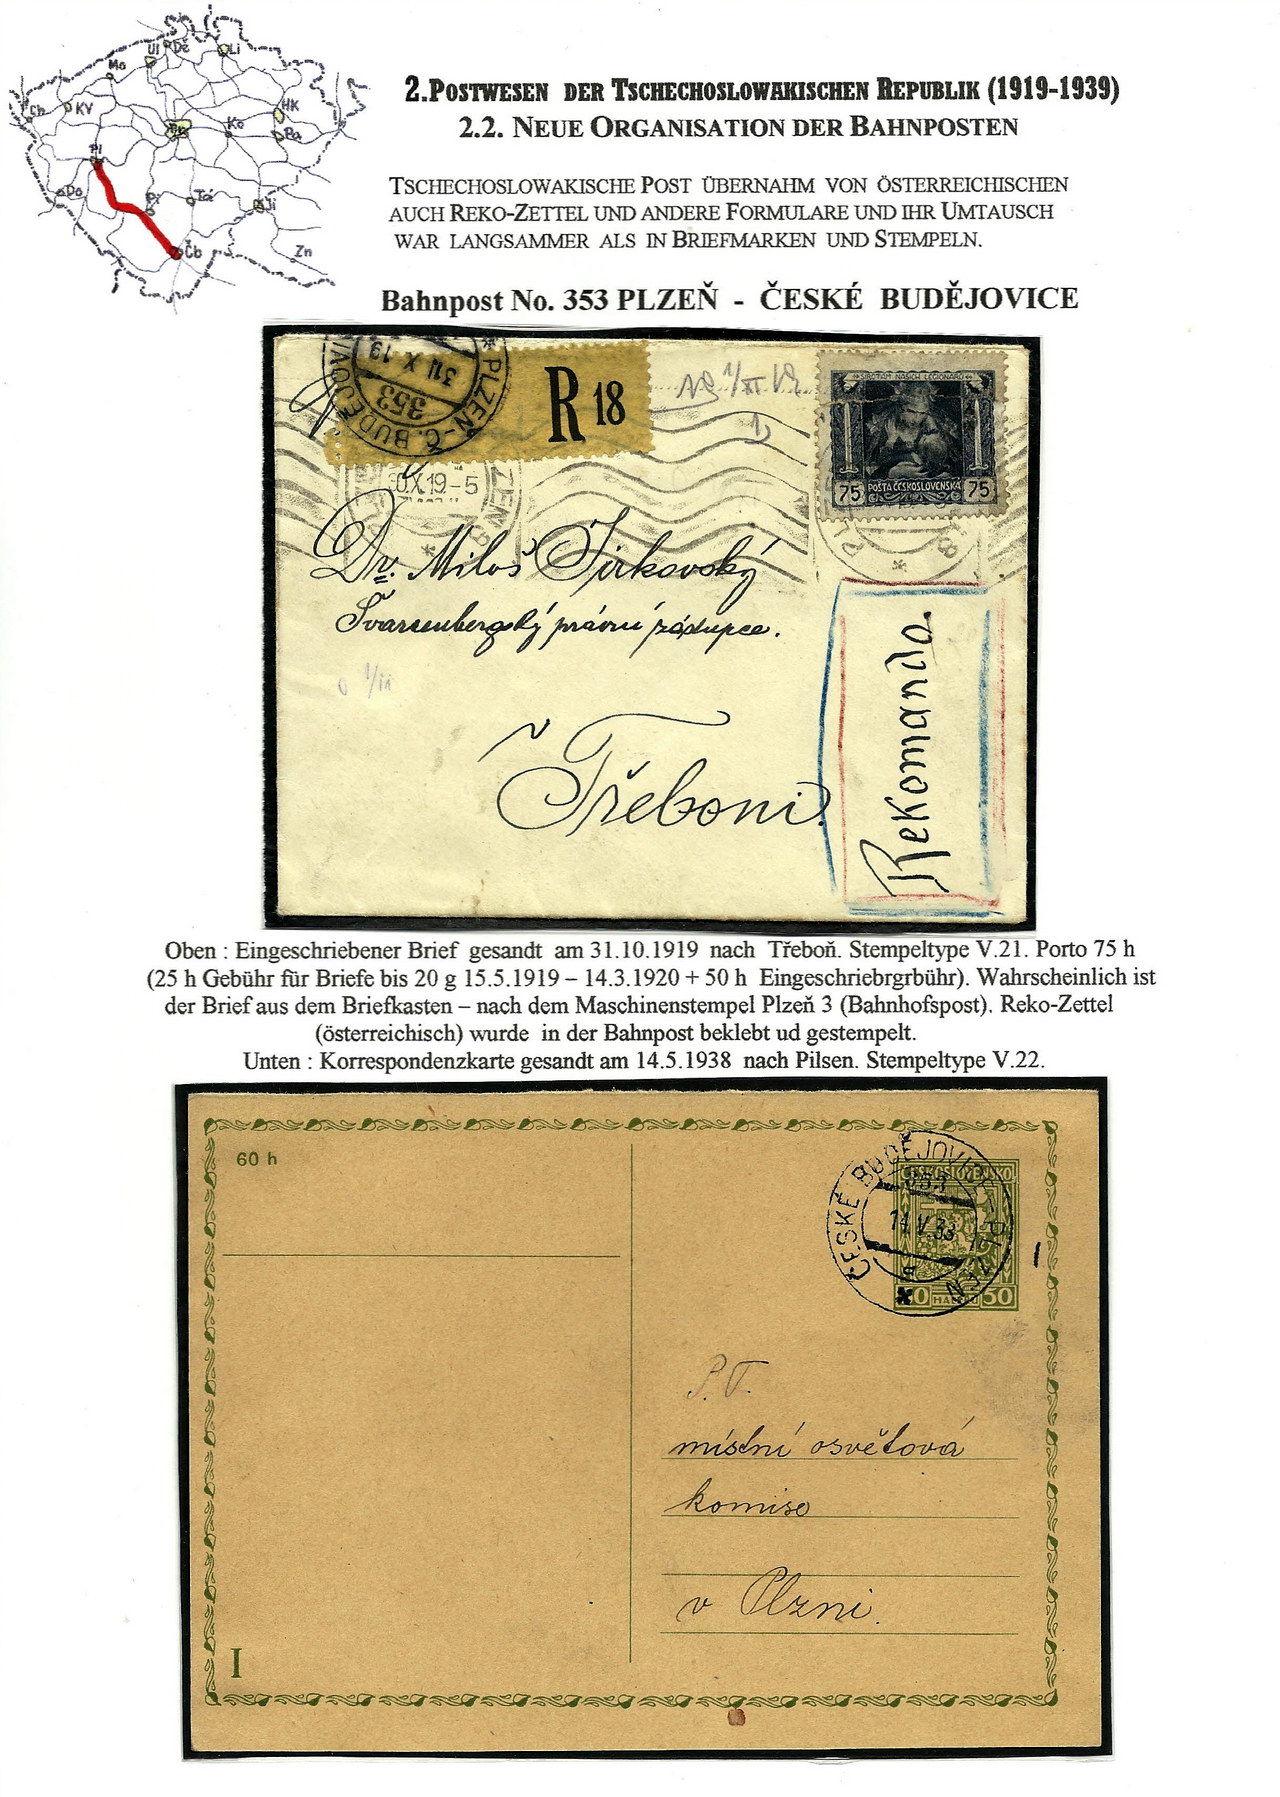 Ul
Dě
Li
Mo
KV
Ch
HK
Pa
Ko
Pl
Do
Tá
Ji
Čb
Zn
2.Postwesen der Tschechoslowakischen Republik (1919-1939)
2.2. Neue Organisation der Bahnposten
Tschechoslowakische Post übernahm von österreichischen
auch Reko-Zettel und andere Formulare und ihr Umtausch
war langsammer als in Briefmarken und Stempeln.
Bahnpost No. 353 PLZEŇ - ČESKÉ BUDĚJOVICE
* PLZEŇ-Č. BUDĚJOVICE
31 X 19
353
R 18
30.X.19-5
75 POŠTA ČESKOSLOVENSKÁ 75
Dr. Miloš Jirkovský
Švarcenberský právní zástupce.
v Třeboni.
Rekomando.
Oben : Eingeschriebener Brief gesandt am 31.10.1919 nach Třeboň. Stempeltype V.21. Porto 75 h
(25 h Gebühr für Briefe bis 20 g 15.5.1919 – 14.3.1920 + 50 h Eingeschriebrgrbühr). Wahrscheinlich ist
der Brief aus dem Briefkasten – nach dem Maschinenstempel Plzeň 3 (Bahnhofspost). Reko-Zettel
(österreichisch) wurde in der Bahnpost beklebt ud gestempelt.
Unten : Korrespondenzkarte gesandt am 14.5.1938 nach Pilsen. Stempeltype V.22.
60 h
ČESKÉ BUDĚJOVICE-PLZEŇ
353
14.V.38
ČESKOSLOVENSKO
50 HALÉŘŮ 50
P.T.
místní osvětová
komise
v Plzni.
I